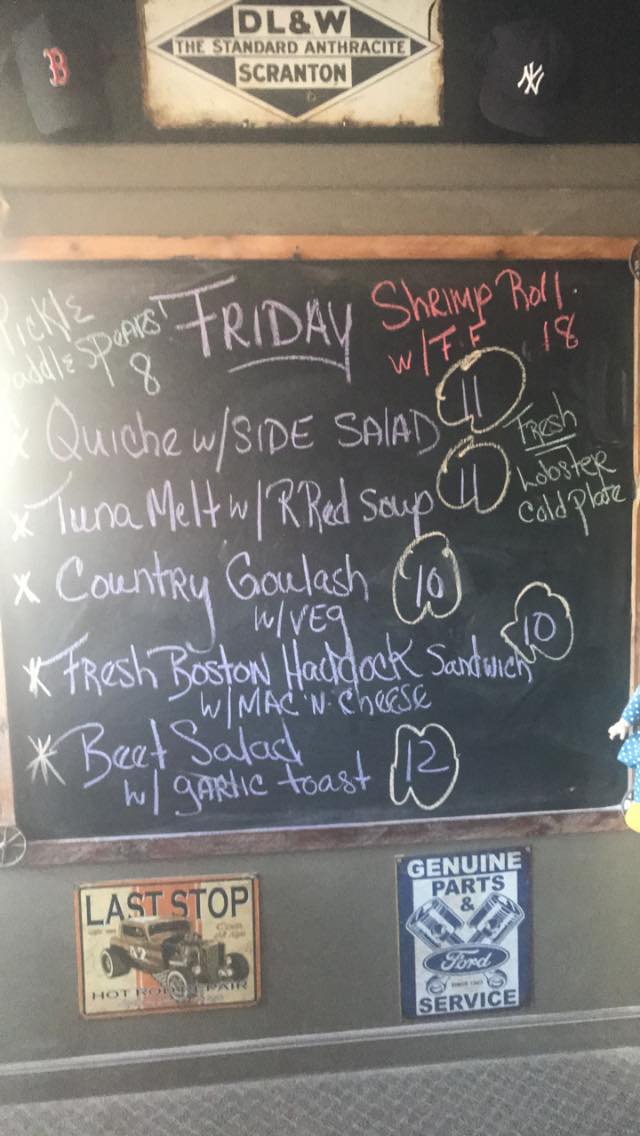 B
DL&W
THE STANDARD ANTHRACITE
SCRANTON
NY
FRIDAY
SPEARS!
8
Shrimp Roll
w/F.F 18
Quiche w/SIDE SALAD 11
Fresh
Lobster
Cold Plate
Tuna Melt w/ R Red Soup 11
Country Goulash 10
w/VEG
FRESH BOSTON HADDOCK Sandwich 10
w/MAC 'N' CHEESE
Beet Salad 12
w/ GARLIC toast
LAST STOP
HOT ROD REPAIR
GENUINE
PARTS
&
Ford
SINCE 1903
SERVICE